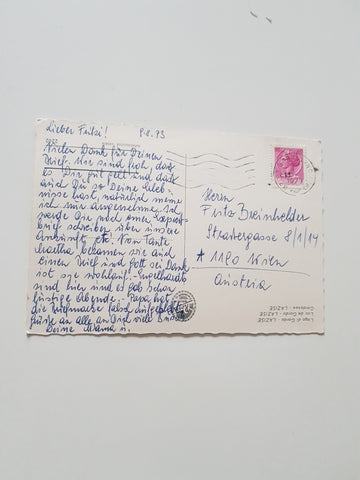 Lieber Fritzi! 8.8.73
Vielen Dank für Deinen
Brief. Wir sind froh, daß
es Dir gut geht und daß
auch Du so Deine Erleb-
nisse hast, natürlich meine
ich nur angenehme. Ich
werde Dir noch einen Expreß-
brief schreiben über unsere
Ankunft etc. Von Tante
Martha bekamen wir auch
einen Brief und Gott sei Dank
ist sie wohlauf. Engelhardts
sind hier und es gab schon
lustige Abende. Papa hat
die Briefmarke falsch aufgeklebt.
Grüße an alle, an Dich viele
Deine Mama u.
Herrn
Fritz Breinhelder
Strastergasse 8/1/14
* 1190 Wien
Austria
Lago di Garda - LAZISE
Lac de Garde - LAZISE
Gardasee - LAZISE